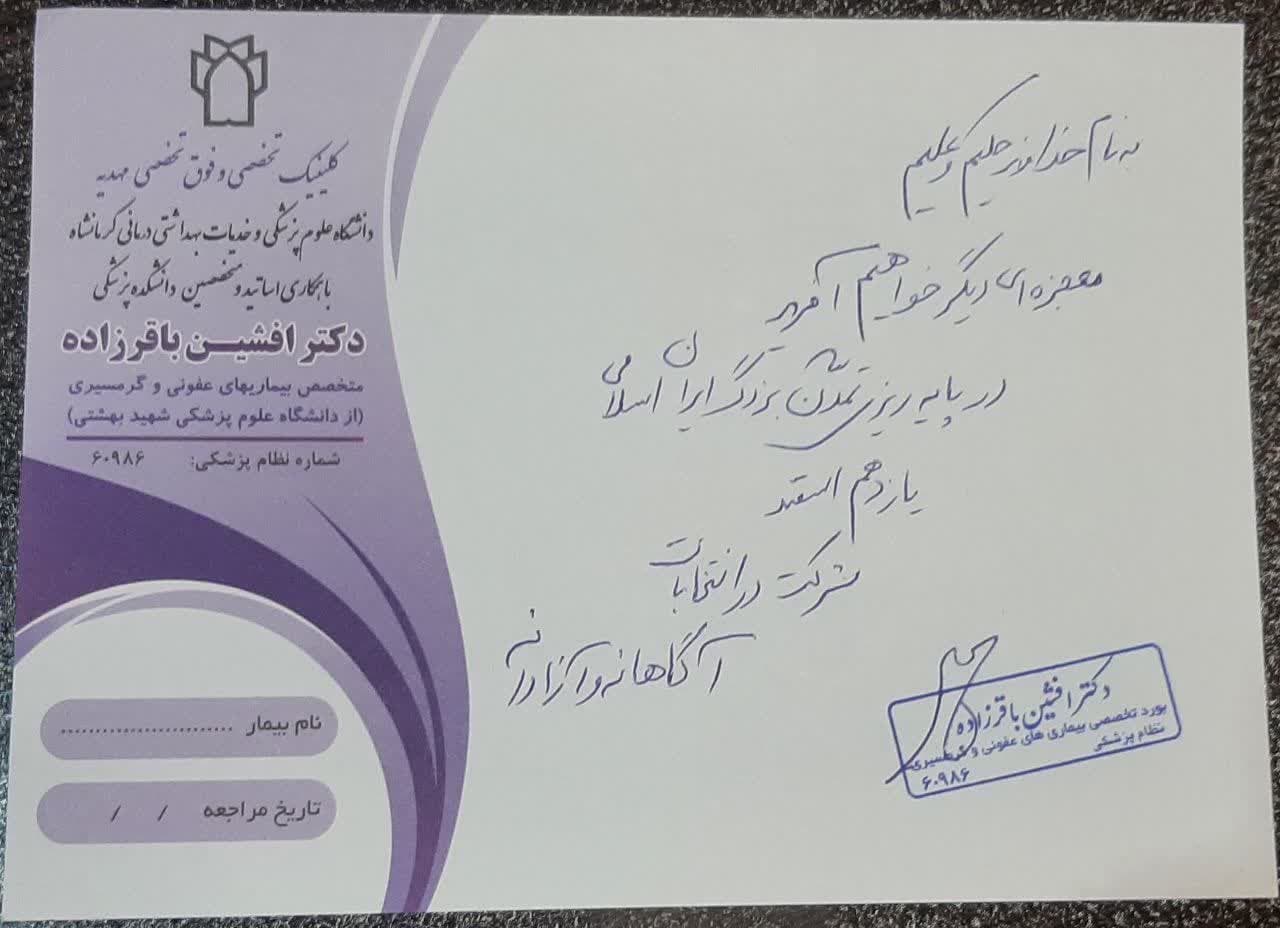 به نام خداوند حکیم و علیم
معجزه ای دیگر خواهیم آفرید
در پایه ریزی تمدن بزرگ ایران اسلامی
یازدهم اسفند
شرکت در انتخابات
آگاهانه و آزادانه
دکتر افشین باقرزاده
بورد تخصصی بیماری های عفونی و گرمسیری
نظام پزشکی
۶۰۹۸۶
کلینیک تخصصی و فوق تخصصی مهدیه
دانشگاه علوم پزشکی و خدمات بهداشتی درمانی کرمانشاه
با همکاری اساتید و متخصصین دانشکده پزشکی
دکتر افشین باقرزاده
متخصص بیماریهای عفونی و گرمسیری
(از دانشگاه علوم پزشکی شهید بهشتی)
شماره نظام پزشکی: ۶۰۹۸۶
نام بیمار ..........................
تاریخ مراجعه / /